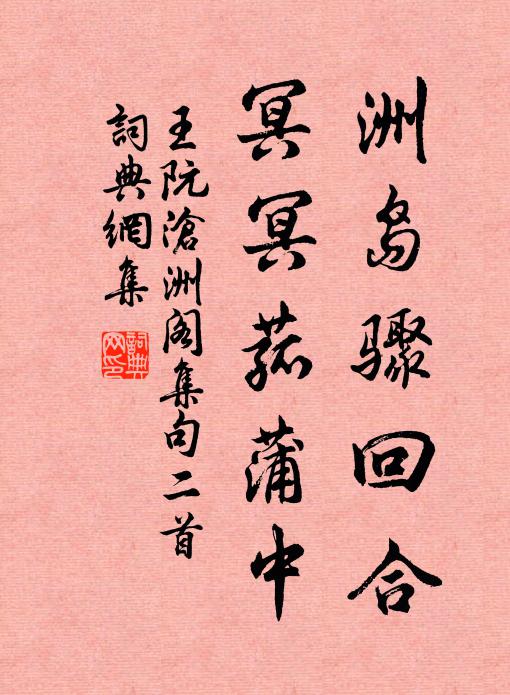 洲岛骤回合
冥冥菰蒲中
王阮滄洲阁集句二首
詞典網集
詞典网印